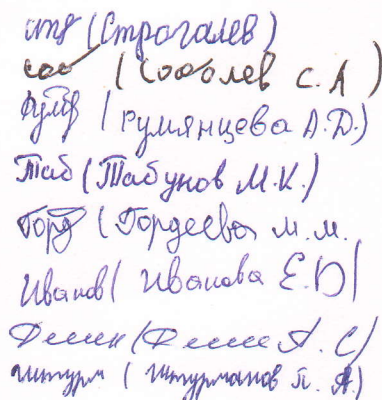 (Строгалев)
(Соболев С.А
(Румянцева А.Д.)
Таб (Табунов М.К.)
Горд (Гордеева М.М.
Иванов (Иванова Е.В)
А.С)
штурм (Штурманов П.А.)